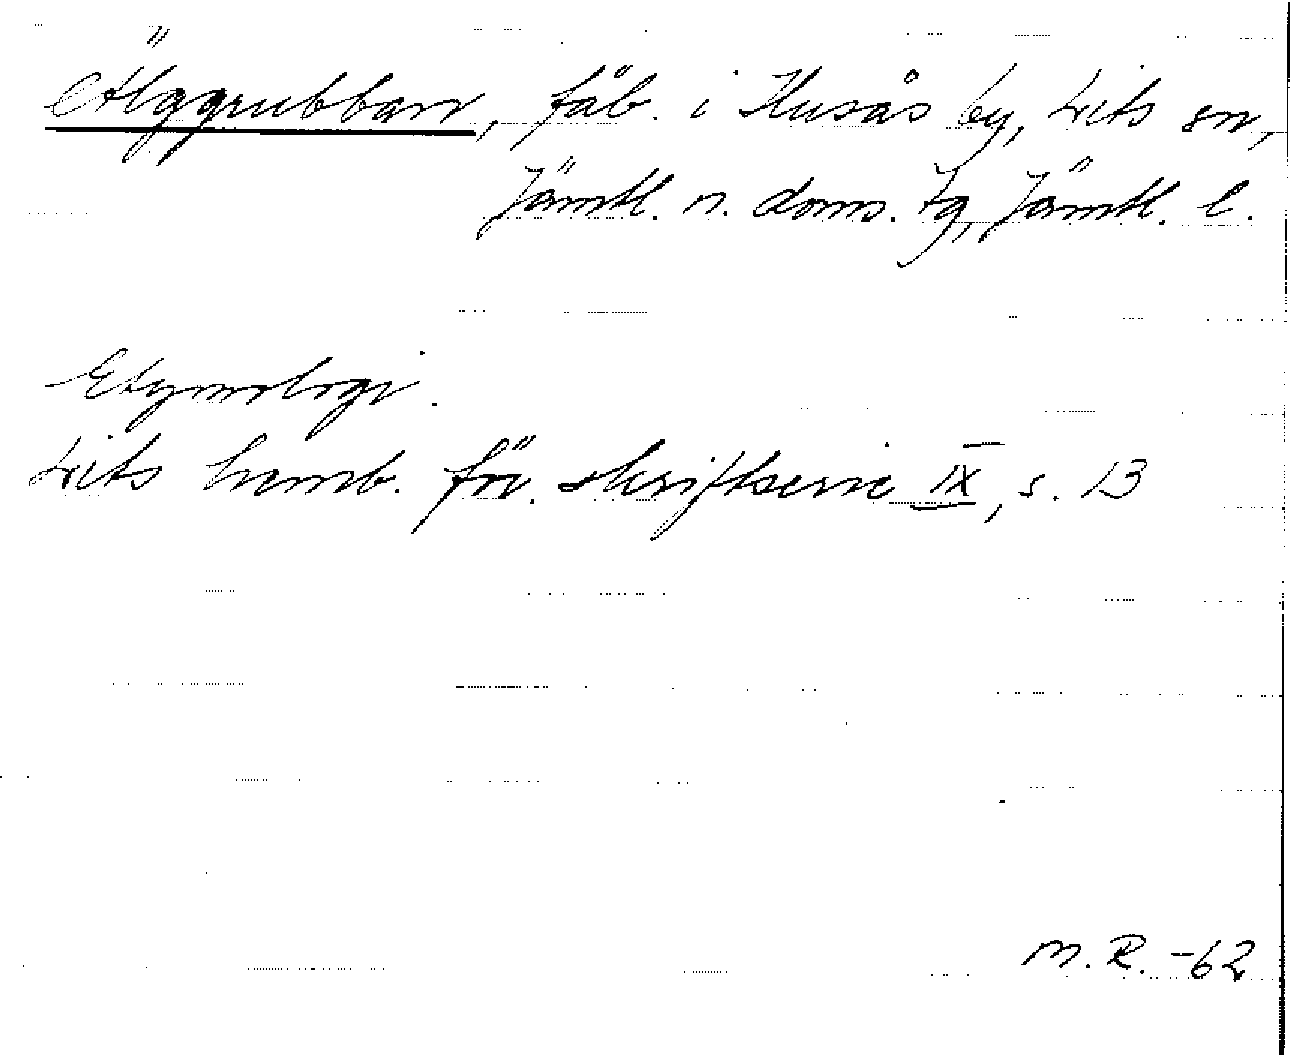 Älggrubban, fäb. i Husås by, Lits sn,
Jämtl. n. doms. tg, Jämtl. l.
Etymologi.
Lits hemb. för. skriftserie IX, s. 13
M. R. -62